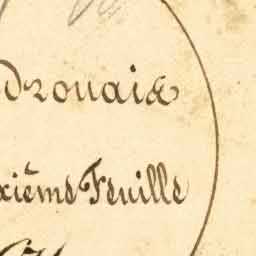 Drouais
xième Feuille